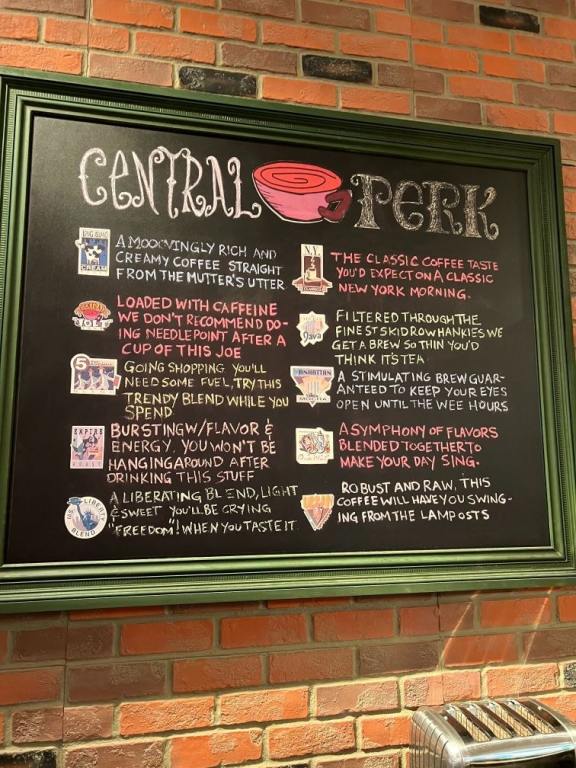 CENTRAL PERK
A MOOOVINGLY RICH AND
CREAMY COFFEE STRAIGHT
FROM THE MUTTER'S UTTER
LOADED WITH CAFFEINE
WE DON'T RECOMMEND DO-
ING NEEDLEPOINT AFTER A
CUP OF THIS JOE
GOING SHOPPING YOU'LL
NEED SOME FUEL, TRY THIS
TRENDY BLEND WHILE YOU
SPEND
BURSTING W/FLAVOR &
ENERGY, YOU WON'T BE
HANGING AROUND AFTER
DRINKING THIS STUFF
LIBERTY
BLEND
A LIBERATING BLEND, LIGHT
& SWEET YOU'LL BE CRYING
"FREEDOM"! WHEN YOU TASTE IT
N.Y.
THE CLASSIC COFFEE TASTE
YOU'D EXPECT ON A CLASSIC
NEW YORK MORNING.
Java
FILTERED THROUGH THE
FINEST SKID ROW HANKIES WE
GET A BREW SO THIN YOU'D
THINK ITS TEA
MANHATTAN
A STIMULATING BREW GUAR-
ANTEED TO KEEP YOUR EYES
OPEN UNTIL THE WEE HOURS
A SYMPHONY OF FLAVORS
BLENDED TOGETHER TO
MAKE YOUR DAY SING.
ROBUST AND RAW, THIS
COFFEE WILL HAVE YOU SWING-
ING FROM THE LAMPOSTS